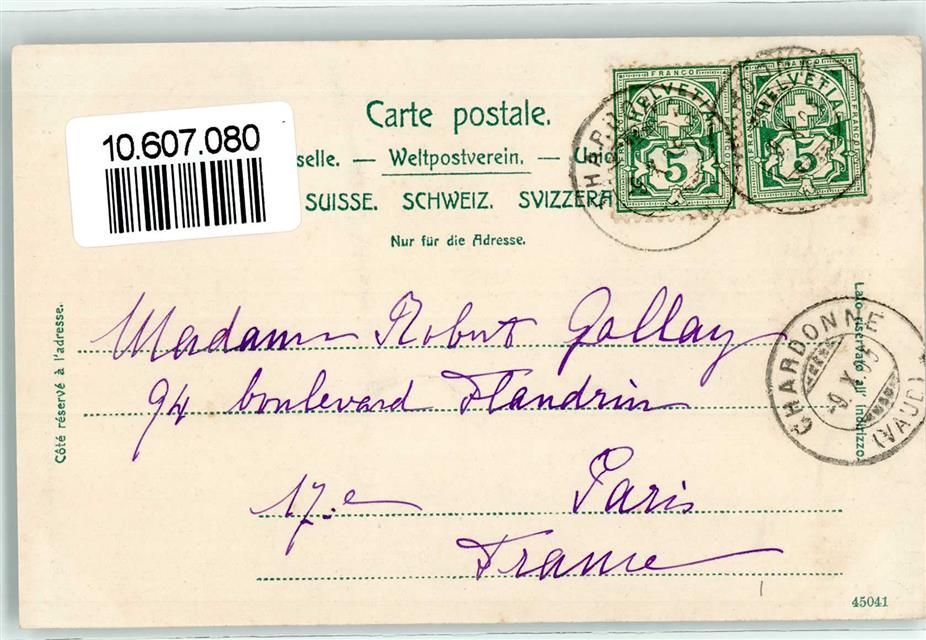 10.607.080
Carte postale.
selle. — Weltpostverein. —
SUISSE. SCHWEIZ. SVIZZERA
Nur für die Adresse.
FRANCO
HELVETIA
5
FRANCO
HELVETIA
5
Côté réservé à l'adresse.
Lato riservato all' indirizzo.
Madame Robert Gollay
94 boulevard Flandrin
17.e Paris
France
CHARDONNE
-9.X.
(VAUD)
45041